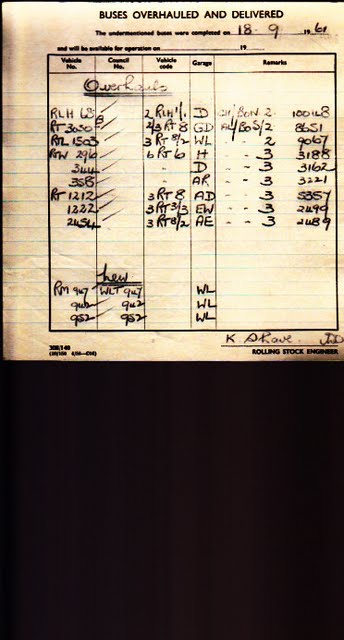 BUSES OVERHAULED AND DELIVERED
The undermentioned buses were completed on 18 - 9 1961
and will be available for operation on 19
Vehicle No. Council No. Vehicle code Garage Remarks
Overhauls
RLH 68 2 RLH 1/1 D 2 10048
RT 3050 2/3 RT 8 GD 2 8651
RTL 1503 3 RT 8/2 WL 2 9067
RTW 296 6 RT 6 H - - 3 3188
344 " D - - 3 3162
358 AR - - 3 3221
RT 1212 3 RT 8 AD - - 3 5357
1222 3 RT 3/3 EW - - 3 2490
2454 3 RT 8/2 AE - - 3 2489
New
RM 947 WLT 947 WL
942 942 WL
952 952 WL
K Shave.
ROLLING STOCK ENGINEER